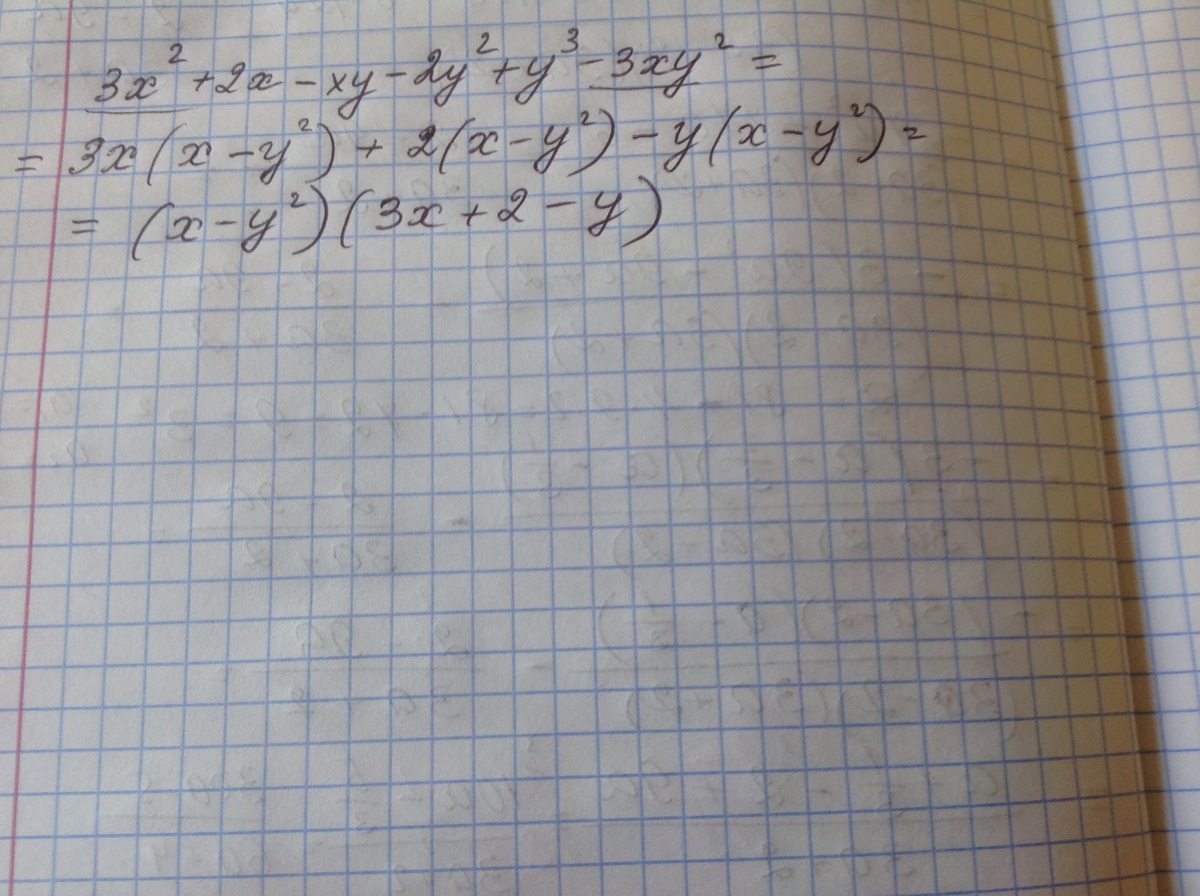 3x² + 2x - xy - 2y² + y³ - 3xy² =
= 3x(x - y²) + 2(x - y²) - y(x - y²) =
= (x - y²)(3x + 2 - y)